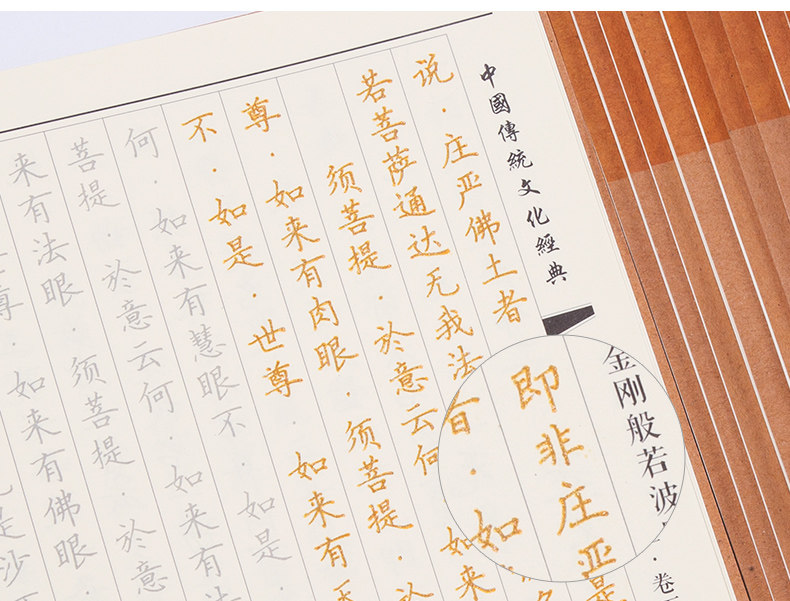 中國傳統文化經典
金刚般若波·卷
说·庄严佛土者
即非庄严是
若菩萨通达无我法
·如
须菩提·於意云何
如来
尊·如来有肉眼·须菩提·於
不·如是·世尊·如来有
何·如来有慧眼不·如是·
菩提·於意云何·如来有法
来有法眼·须菩提·於意
尊·如来有佛眼·
是沙